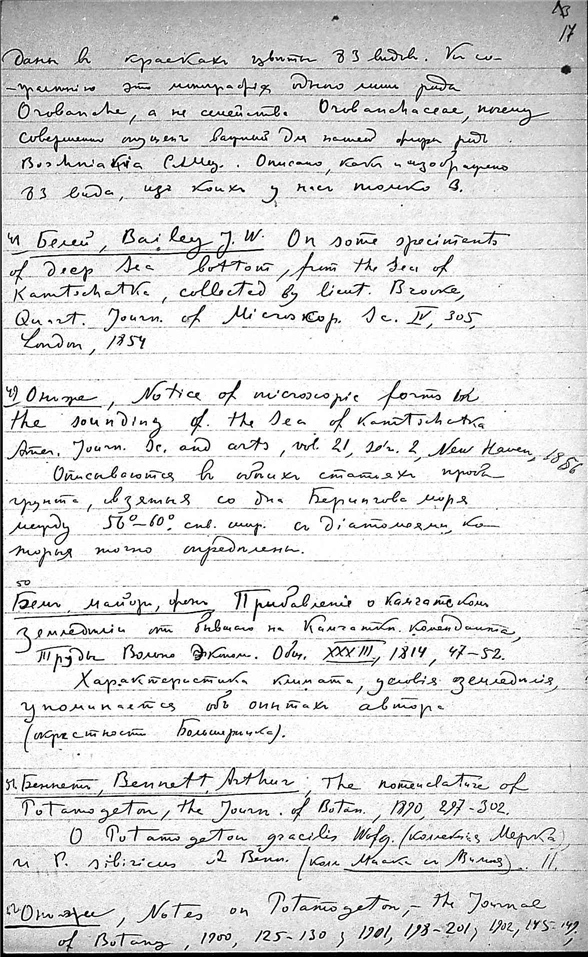 17
даны в красках цветы 83 видов. Къ со-
-жалѣнію это монографія одного лишь рода
Orobanche, а не семейства Orobanchaceae, почему
совершенно опущенъ важный для нашей флоры родъ
Boschniakia C.A.Mey. Описано, какъ и изображено
83 вида, изъ коихъ у насъ только 3.
Белей, Bailey J. W. On some specimens
of deep Sea bottom, from the Sea of
Kamtschatka, collected by lieut. Brooke,
Quart. Journ. of Microscop. Sc. IV, 305,
London, 1854
49 Онъ-же, Notice of microscopic forms
the sounding of the Sea of Kamtschatka
Amer. Journ. Sc. and arts, vol. 21, sér. 2, New Haven, 1856
Описываются въ обѣихъ статьяхъ пробы
грунта, взятыя со дна Берингова моря
между 56°-60° сѣв. шир. съ діатомеями, ко-
торыя точно опредѣлены.
50
Бемъ, майоръ, фонъ Прибавленіе о камчатскомъ
Земледѣліи отъ бывшаго на Камчаткѣ коменданта,
Труды Вольно Эконом. Общ. XXXIII, 1814, 47-52.
Характеристика климата, условія земледѣлія,
упоминается объ опытахъ автора
(окрестности Большерѣцка).
51 Беннетъ, Bennett Arthur, The nomenclature of
Potamogeton, the Journ. of Botan., 1890, 297-302.
О Potamogeton gracilis Wolfg. (коллекція Мерка)
и P. sibiricus A Benn. (колл Маака съ Вилюя). 11.
52 Онъ-же, Notes on Potamogeton, - the Journal
of Botany, 1900, 125-130; 1901, 198-201; 1902, 145-149,